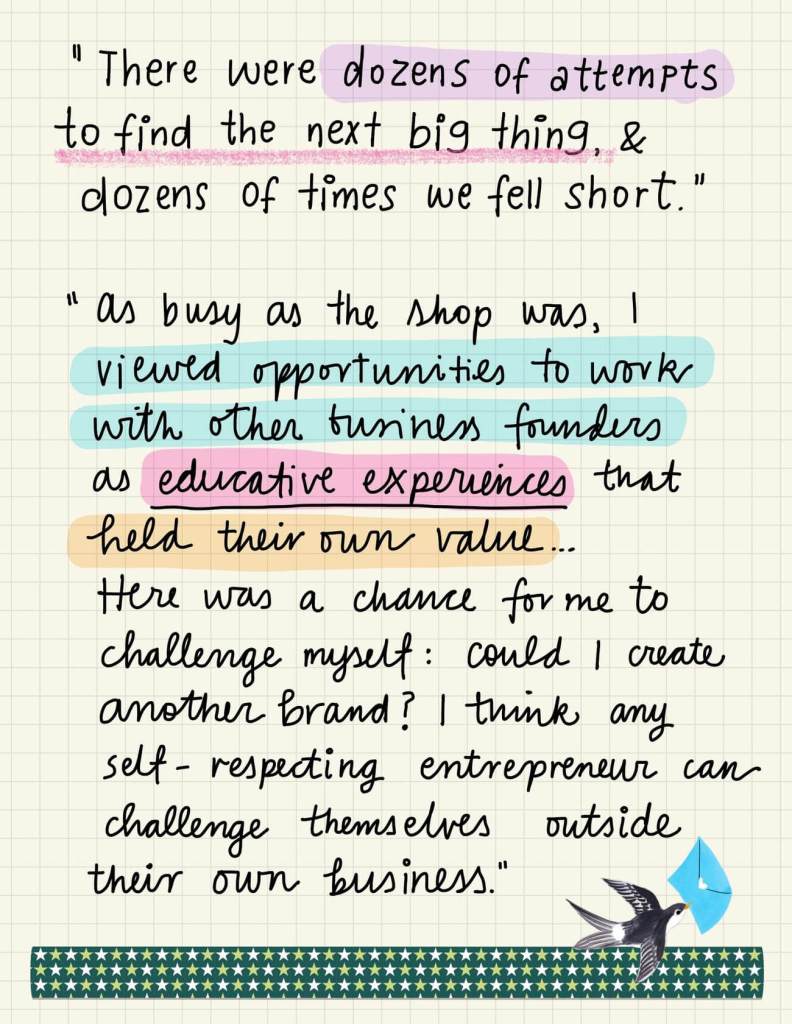 "There were dozens of attempts
to find the next big thing, &
dozens of times we fell short."
"As busy as the shop was, I
viewed opportunities to work
with other business founders
as educative experiences that
held their own value...
Here was a chance for me to
challenge myself: could I create
another brand? I think any
self-respecting entrepreneur can
challenge themselves outside
their own business."